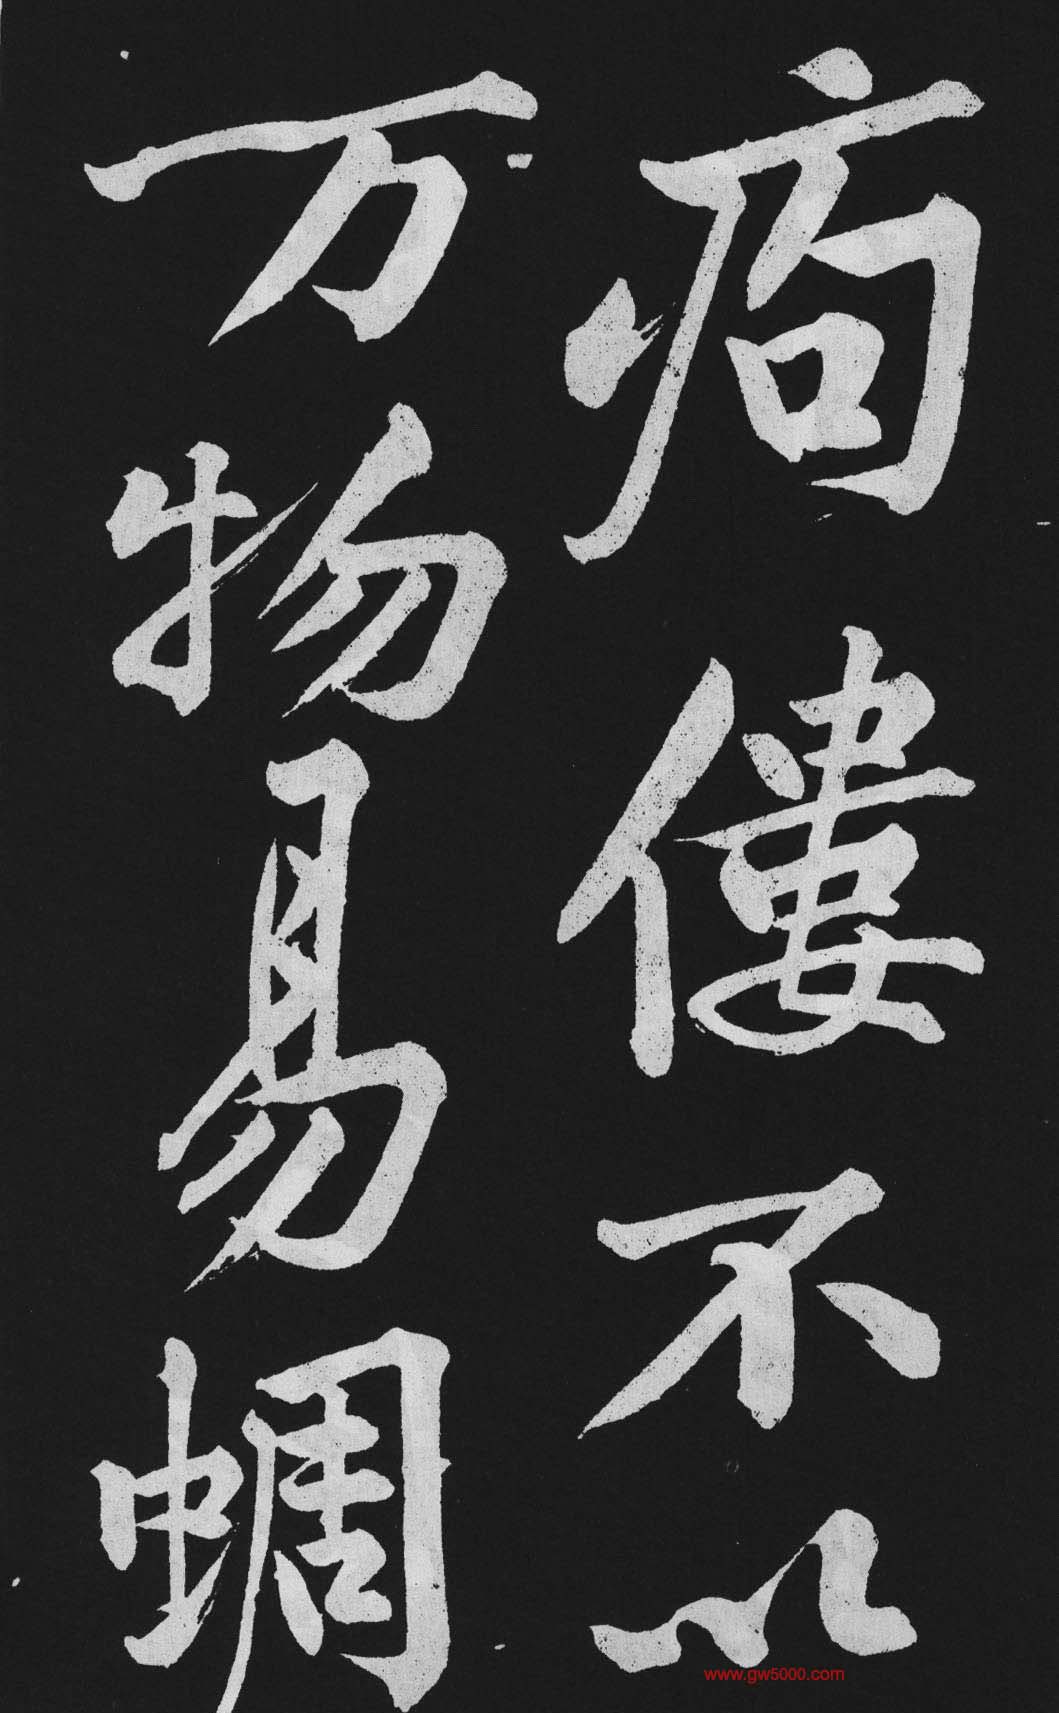 痀僂不以
万物易蜩
www.gw5000.com